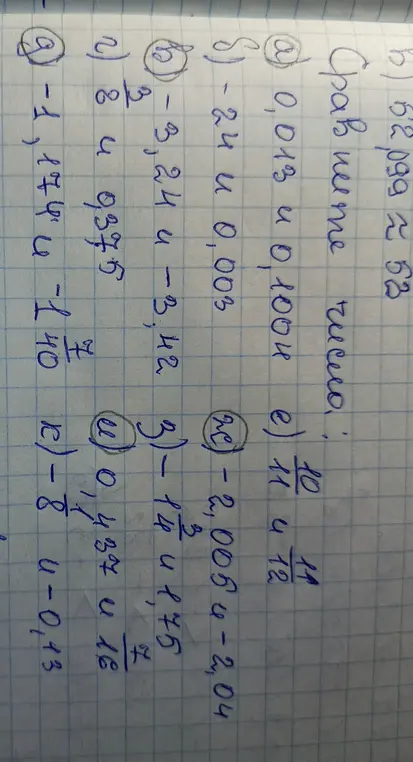 в) 52,099 ≈ 52
Сравните числа:
а) 0,013 и 0,1004
б) -24 и 0,003
в) -3,24 и -3,42
г) 3/8 и 0,375
д) -1,174 и -1 7/40
е) 10/11 и 11/12
ж) -2,005 и -2,04
з) -1 3/4 и 1,75
и) 0,437 и 7/16
к) -1/8 и -0,13